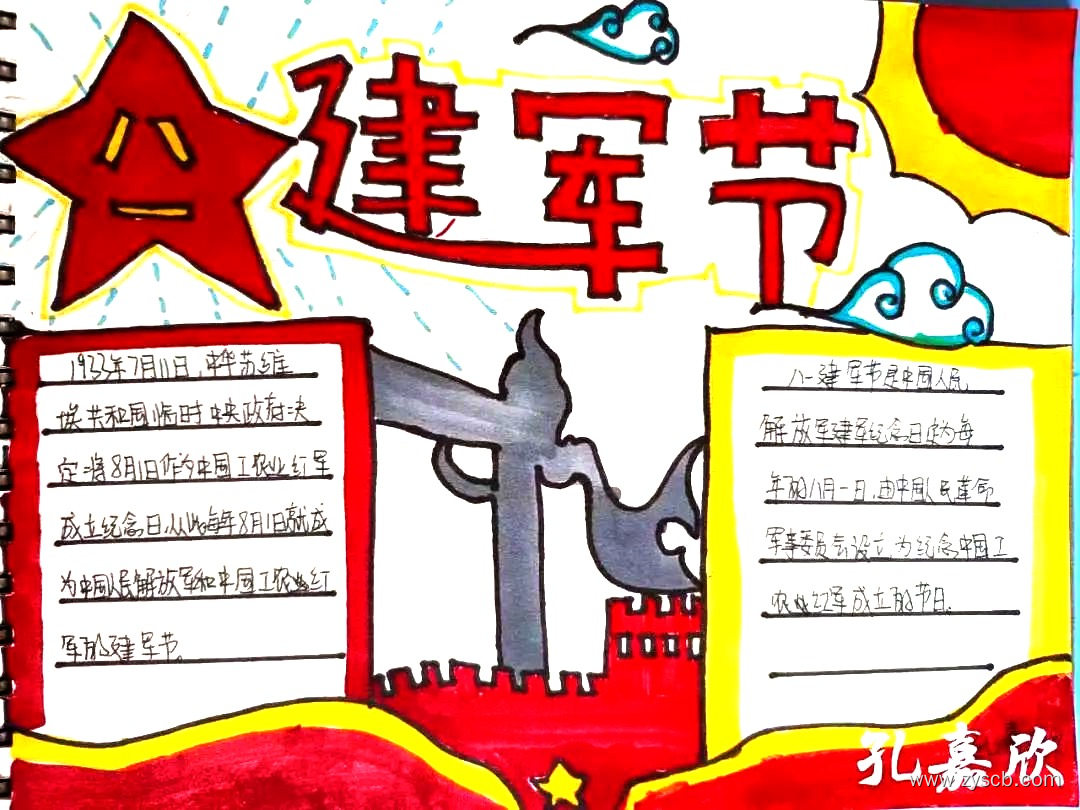 八一
建军节
1933年7月11日,中华苏维
埃共和国临时中央政府决
定将8月1日作为中国工农业红军
成立纪念日,从此每年8月1日就成
为中国人民解放军和中国工农业红
军的建军节。
八一建军节是中国人民
解放军建军纪念日定为每
年的八月一日,由中国人民革命
军事委员会设立,为纪念中国工
农业红军成立的节日.
孔嘉欣
www.zyscb.com